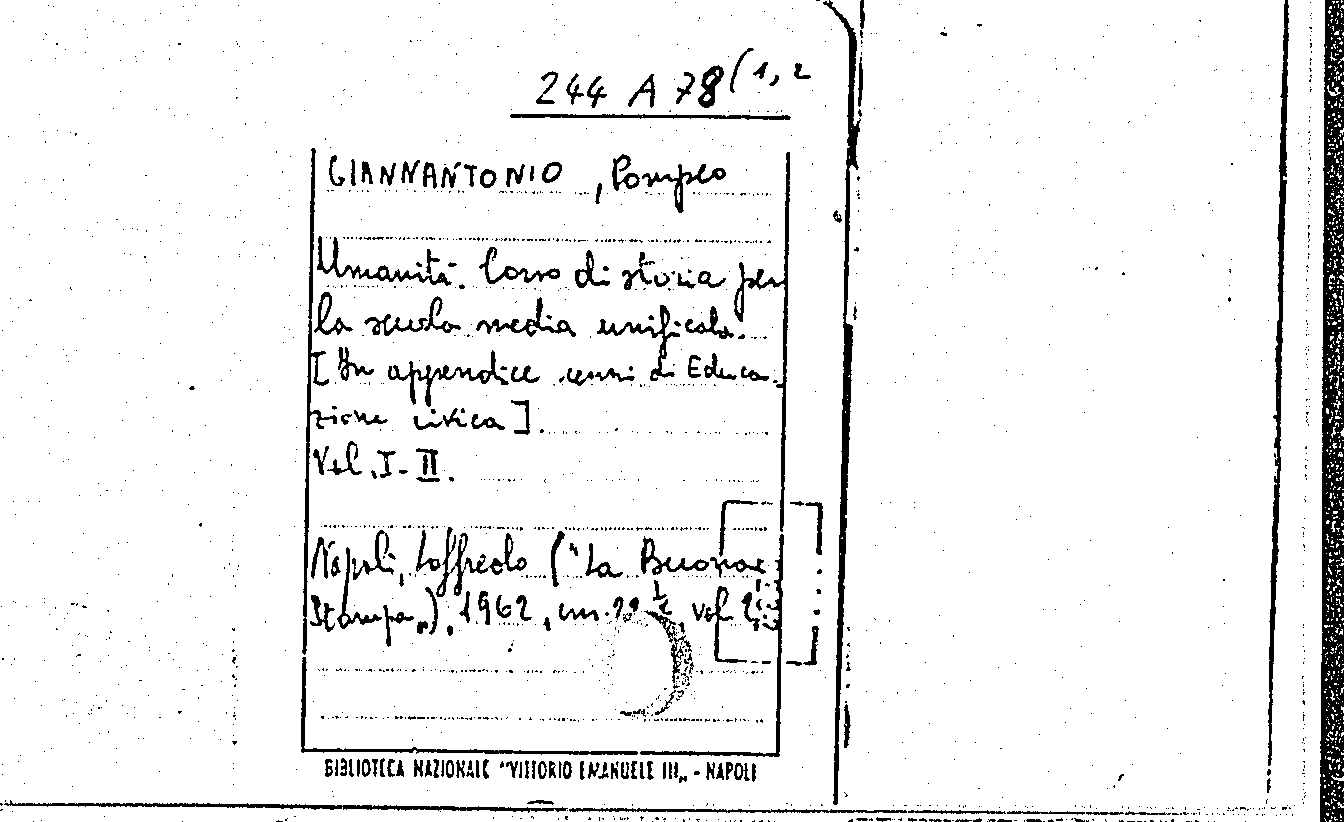 244 A 78 (1, 2
GIANNANTONIO, Pompeo
Umanità. Corso di storia per
la scuola media unificata.
[In appendice cenni di Educa-
zione civica].
Vol. I-II.
Napoli, Loffredo ("La Buona
Stampa„), 1962, cm. ½, vol. 2
BIBLIOTECA NAZIONALE "VITTORIO EMANUELE III„ - NAPOLI